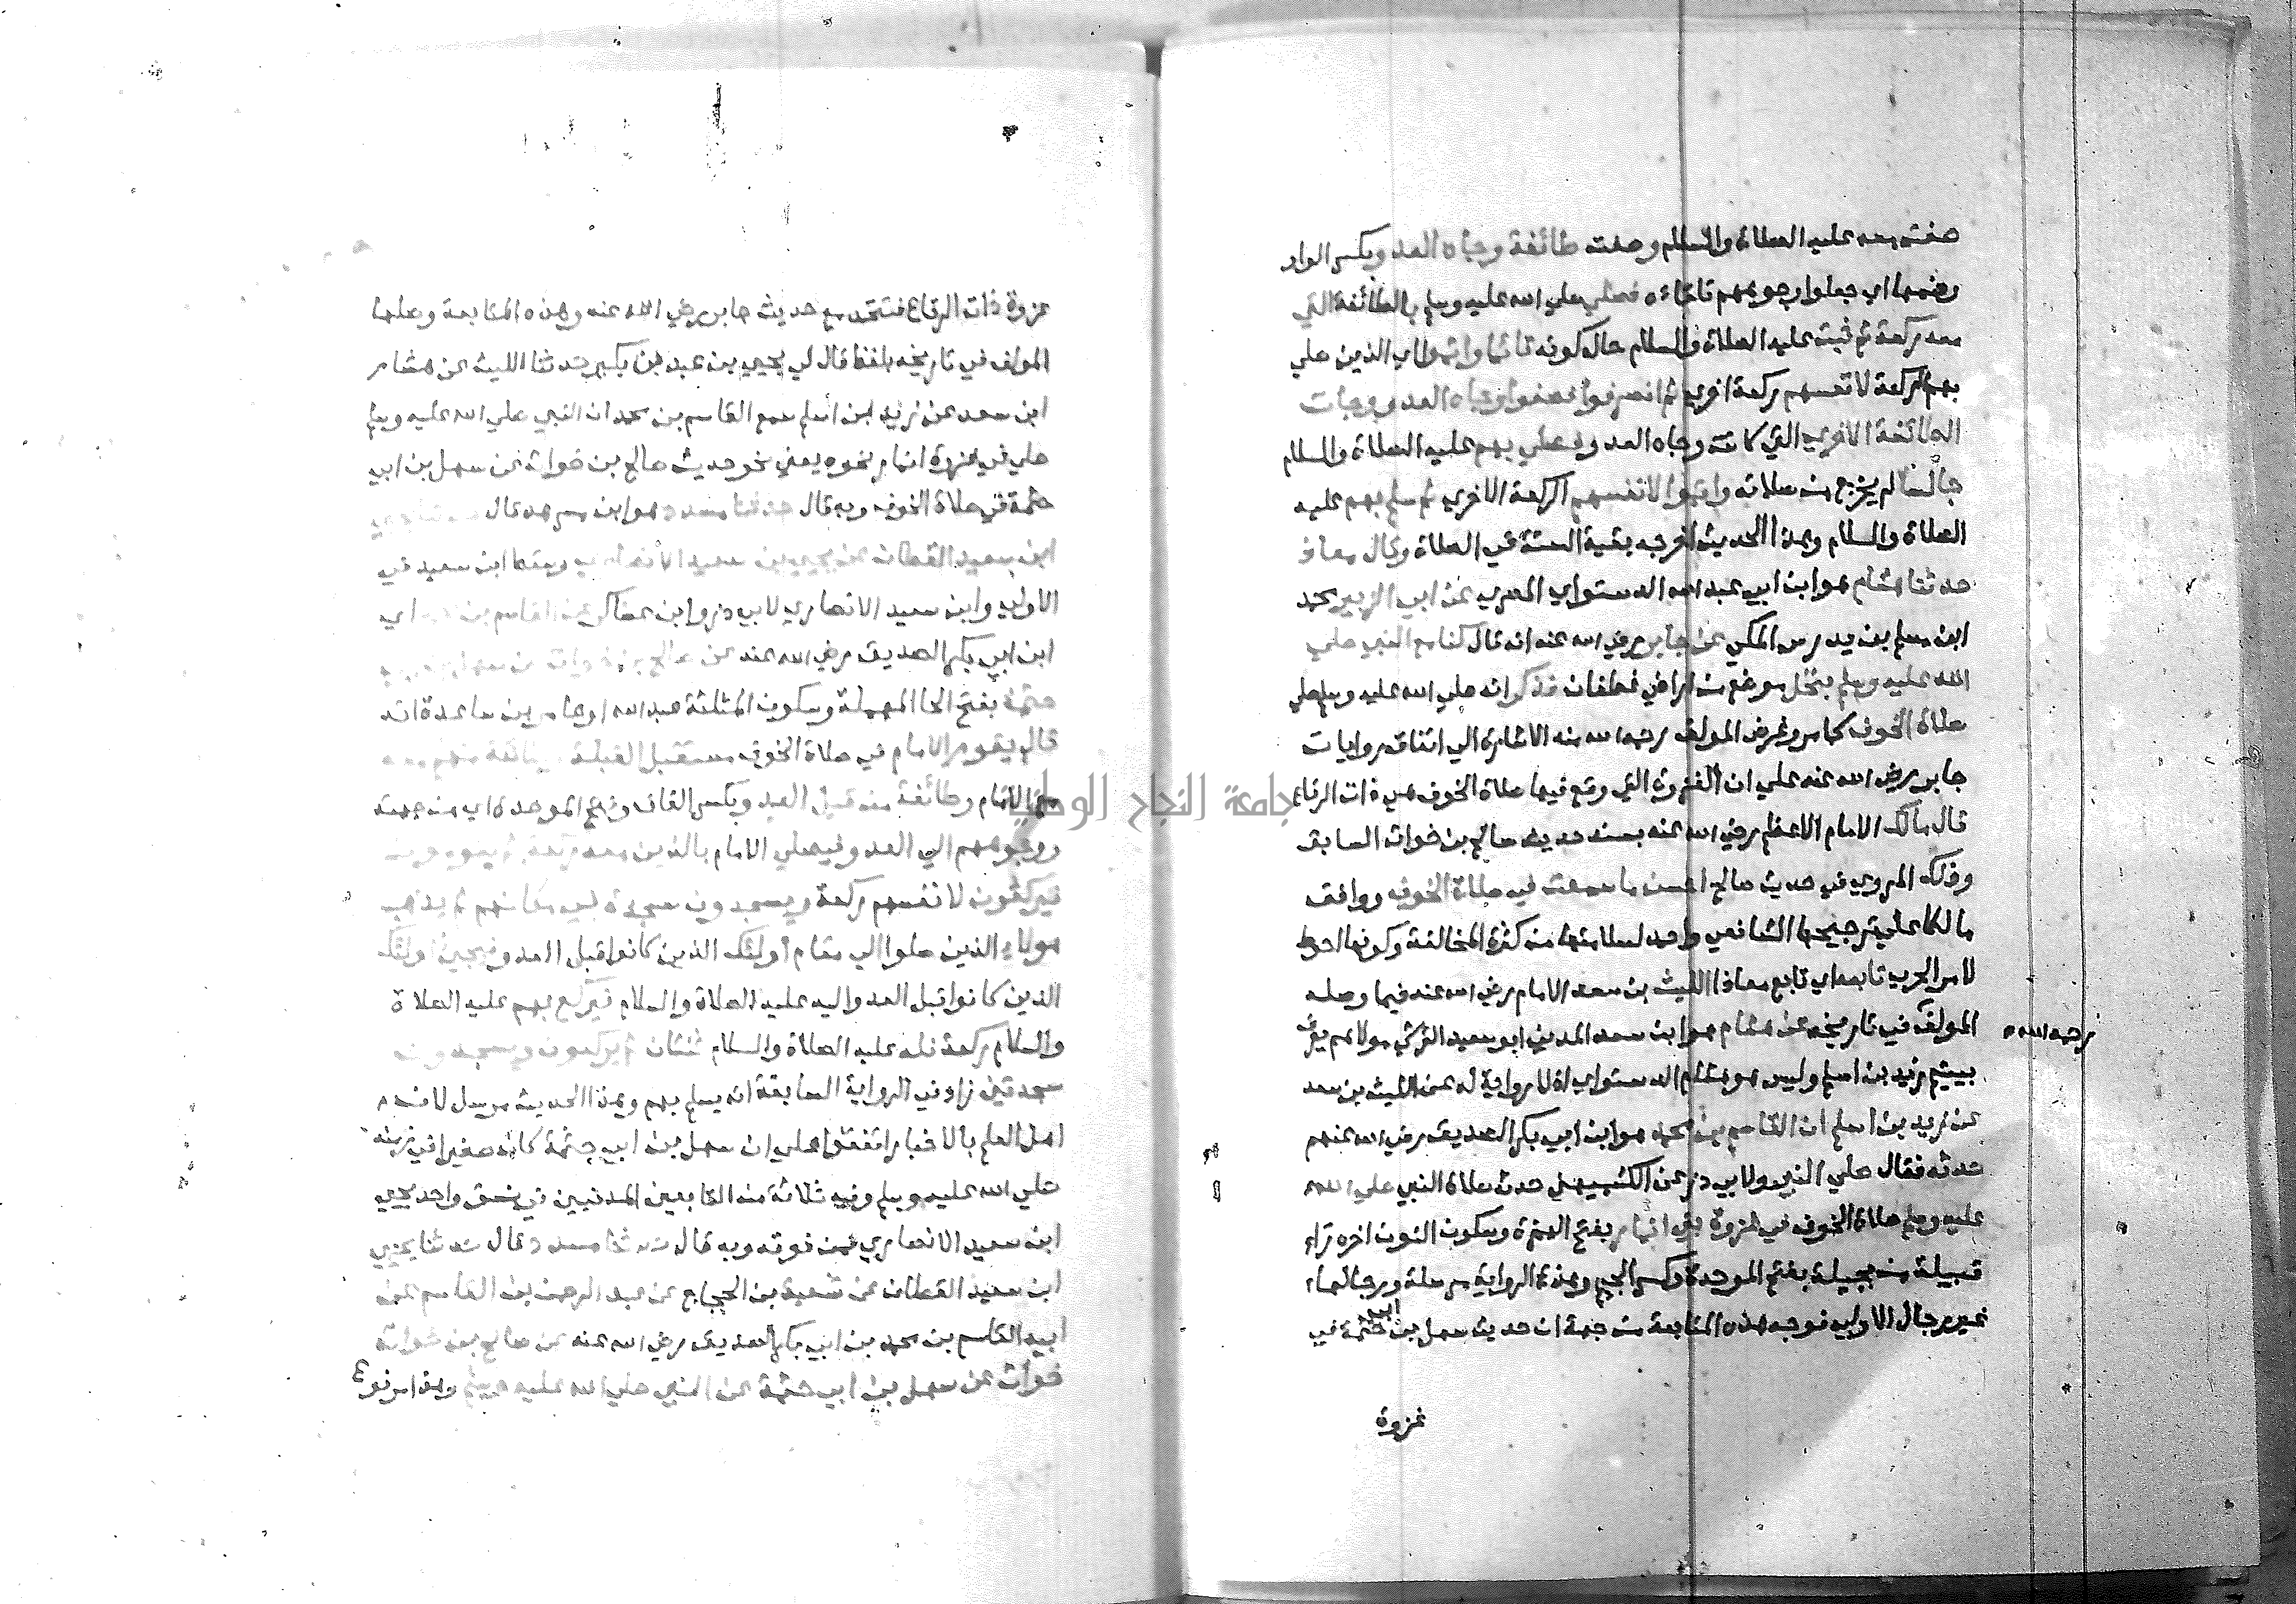 صفت معه عليه الصلاة والسلام وصفت طائفة وجاه العدو بكسر الواو
وضمها اي جعلوا وجوههم تلقاءه فصلي صلي الله عليه وسلم بالطائفة التي
معه ركعة ثم ثبت عليه الصلاة والسلام حال كونه قائما واتموا اي الذين صلي
بهم الركعة لانفسهم ركعة اخري ثم انصرفوا فصفوا وجاه العدو وجات
الطائفة الاخري التي كانت وجاه العدو فصلي بهم عليه الصلاة والسلام
جالسا لم يخرج من صلاته واتموا لانفسهم الركعة الاخري ثم سلم بهم عليه
الصلاة والسلام وهذا الحديث اخرجه بقية الستة في الصلاة وقال معاذ
حدثنا هشام هو ابن ابي عبد الله الدستواي البصري عن ابي الزبير محمد
ابن مسلم بن تدرس المكي عن جابر رضي الله عنه انه قال كنا مع النبي صلي
الله عليه وسلم بنخل موضع من اراضي غطفان فذكر انه صلي الله عليه وسلم صلي
صلاة الخوف كما مر وغرض المولف رحمه الله منه الاشارة الي اتفاق روايات
جابر رضي الله عنه علي ان الغزوة التي وقع فيها صلاة الخوف هي ذات الرقاع
قال مالك الامام الاعظم رضي الله عنه بسند حديث صالح بن خوات السابق
وذلك المروي في حديث صالح احسن ما سمعت في صلاة الخوف ووافق
مالكا علي ترجيحها الشافعي واحمد لسلامتها من كثرة المخالفة وكونها احوط
لامر الحرب تابعه اي تابع معاذا الليث بن سعد الامام رضي الله عنه فيما وصله
المولف في تاريخه عن هشام هو ابن سعد المدني ابو سعيد القرشي مولاهم يعرف
رحمه الله
بيتيم زيد بن اسلم وليس هو هشام الدستواي اذ لا رواية له عن الليث بن سعد
عن زيد بن اسلم ان القاسم بن محمد هو ابن ابي بكر الصديق رضي الله عنهم
حدثه فقال صلي النبي ولابي ذر عن الكشميهني حدث صلاة النبي صلي الله
عليه وسلم صلاة الخوف في غزوة بني انمار بفتح الهمزة وسكون النون اخره راء
قبيلة من بجيلة بفتح الموحدة وكسر الجيم وهذه الرواية مرسلة ورجالها
غير رجال الاولي فوجه هذه المتابعة من جهة ان حديث سهل بن ابي حثمة في
غزوة
غزوة ذات الرقاع فتتحد مع حديث جابر رضي الله عنه وهذه المتابعة وصلها
المولف في تاريخه بلفظ قال لي يحيي بن عبد بن بكير حدثنا الليث عن هشام
ابن سعد عن زيد ابن اسلم سمع القاسم بن محمد ان النبي صلي الله عليه وسلم
صلي في غزوة انمار نحوه يعني نحو حديث صالح بن خوات عن سهل بن ابي
حثمة في صلاة الخوف وبه قال حدثنا مسدد هو ابن مسرهد قال حدثنا يحيي
ابن سعيد القطان عن يحيي بن سعيد الانصاري وسقط ابن سعيد في
الاولي وابن سعيد الانصاري لابي ذر وابن عساكر عن القاسم بن اي
ابن ابي بكر الصديق رضي الله عنه عن صالح بن خوات عن سهل
حثمة بفتح الحا المهملة وسكون المثلثة عبد الله او عامر بن ساعدة انه
قال يقوم الامام في صلاة الخوف مستقبل القبلة وطائفة منهم معه
مع الامام وطائفة من قبل العدو بكسر القاف وفتح الموحدة اي من جهته
ووجوههم الي العدو فيصلي الامام بالذين معه ركعة ثم يقومون
فيركعون لانفسهم ركعة ويسجدون سجدة في مكانهم ثم يذهب
هولاء الذين صلوا الي مقام أولئك الذين كانوا قبل العدو فيجيئ اولئك
الذين كانوا قبل العدو اليه عليه الصلاة والسلام فيركع بهم عليه الصلاة
والسلام ركعة فله عليه الصلاة والسلام ثنتان ثم يركعون ويسجدون
سجدتين زاد في الرواية السابقة انه يسلم بهم وهذا الحديث مرسل لان
اهل العلم بالاخبار اتفقوا علي ان سهل بن ابي حثمة كان صغيرا في زمنه
صلي الله عليه وسلم وفيه ثلاثة من التابعين المدنيين في نسق واحد يحيي
ابن سعيد الانصاري فمن فوقه وبه قال حدثنا مسدد قال حدثنا يحيي
ابن سعيد القطان عن شعبة بن الحجاج عن عبد الرحمن بن القاسم عن
ابيه القاسم بن محمد بن ابي بكر الصديق رضي الله عنه عن صالح بن خوات
خوات عن سهل بن ابي حثمة عن النبي صلي الله عليه وسلم وهذا مرفوع
جامعة النجاح الوطنية